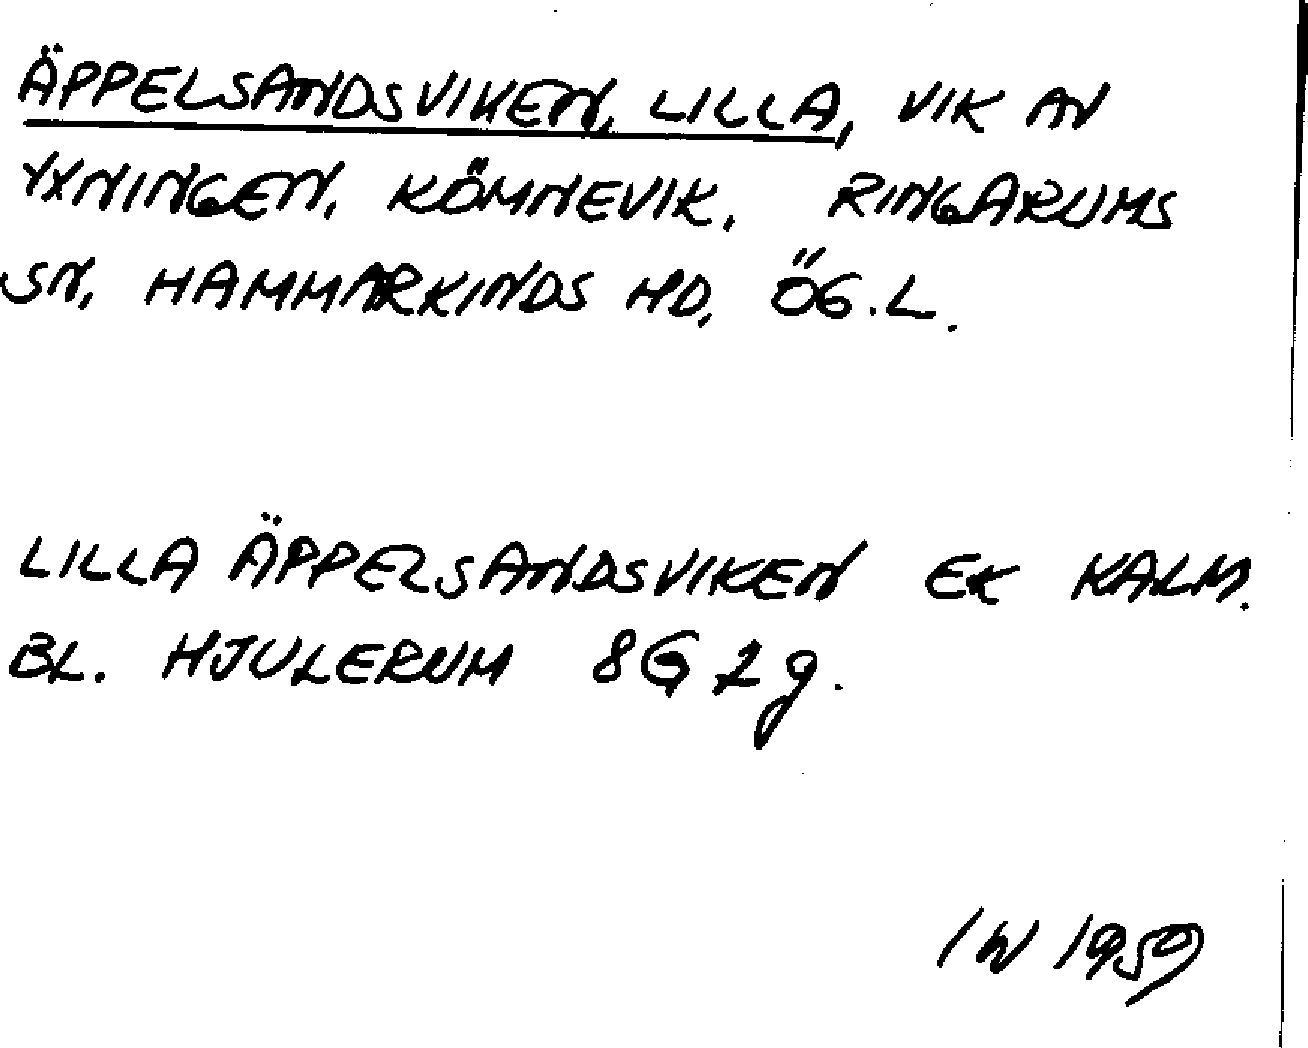 ÄPPELSANDSVIKEN, LILLA, VIK AV
YXNINGEN, KÖMNEVIK, RINGARUMS
SN, HAMMARKINDS HD, ÖG.L.
LILLA ÄPPELSANDSVIKEN EK KALM.
BL. HJULERUM 8G 1g.
IW 1959